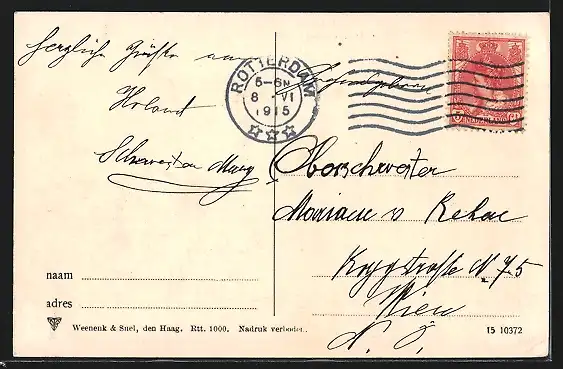 herzliche Grüße aus
Holand
Schwester Mary
ROTTERDAM
5-6N
8 VI
1915
5 NEDERLAND CT
Oberschwester
Mariane v
N 75
Wien
N. Ö.
naam
adres
Weenenk & Snel, den Haag. Rtt. 1000. Nadruk verboden.
15 10372